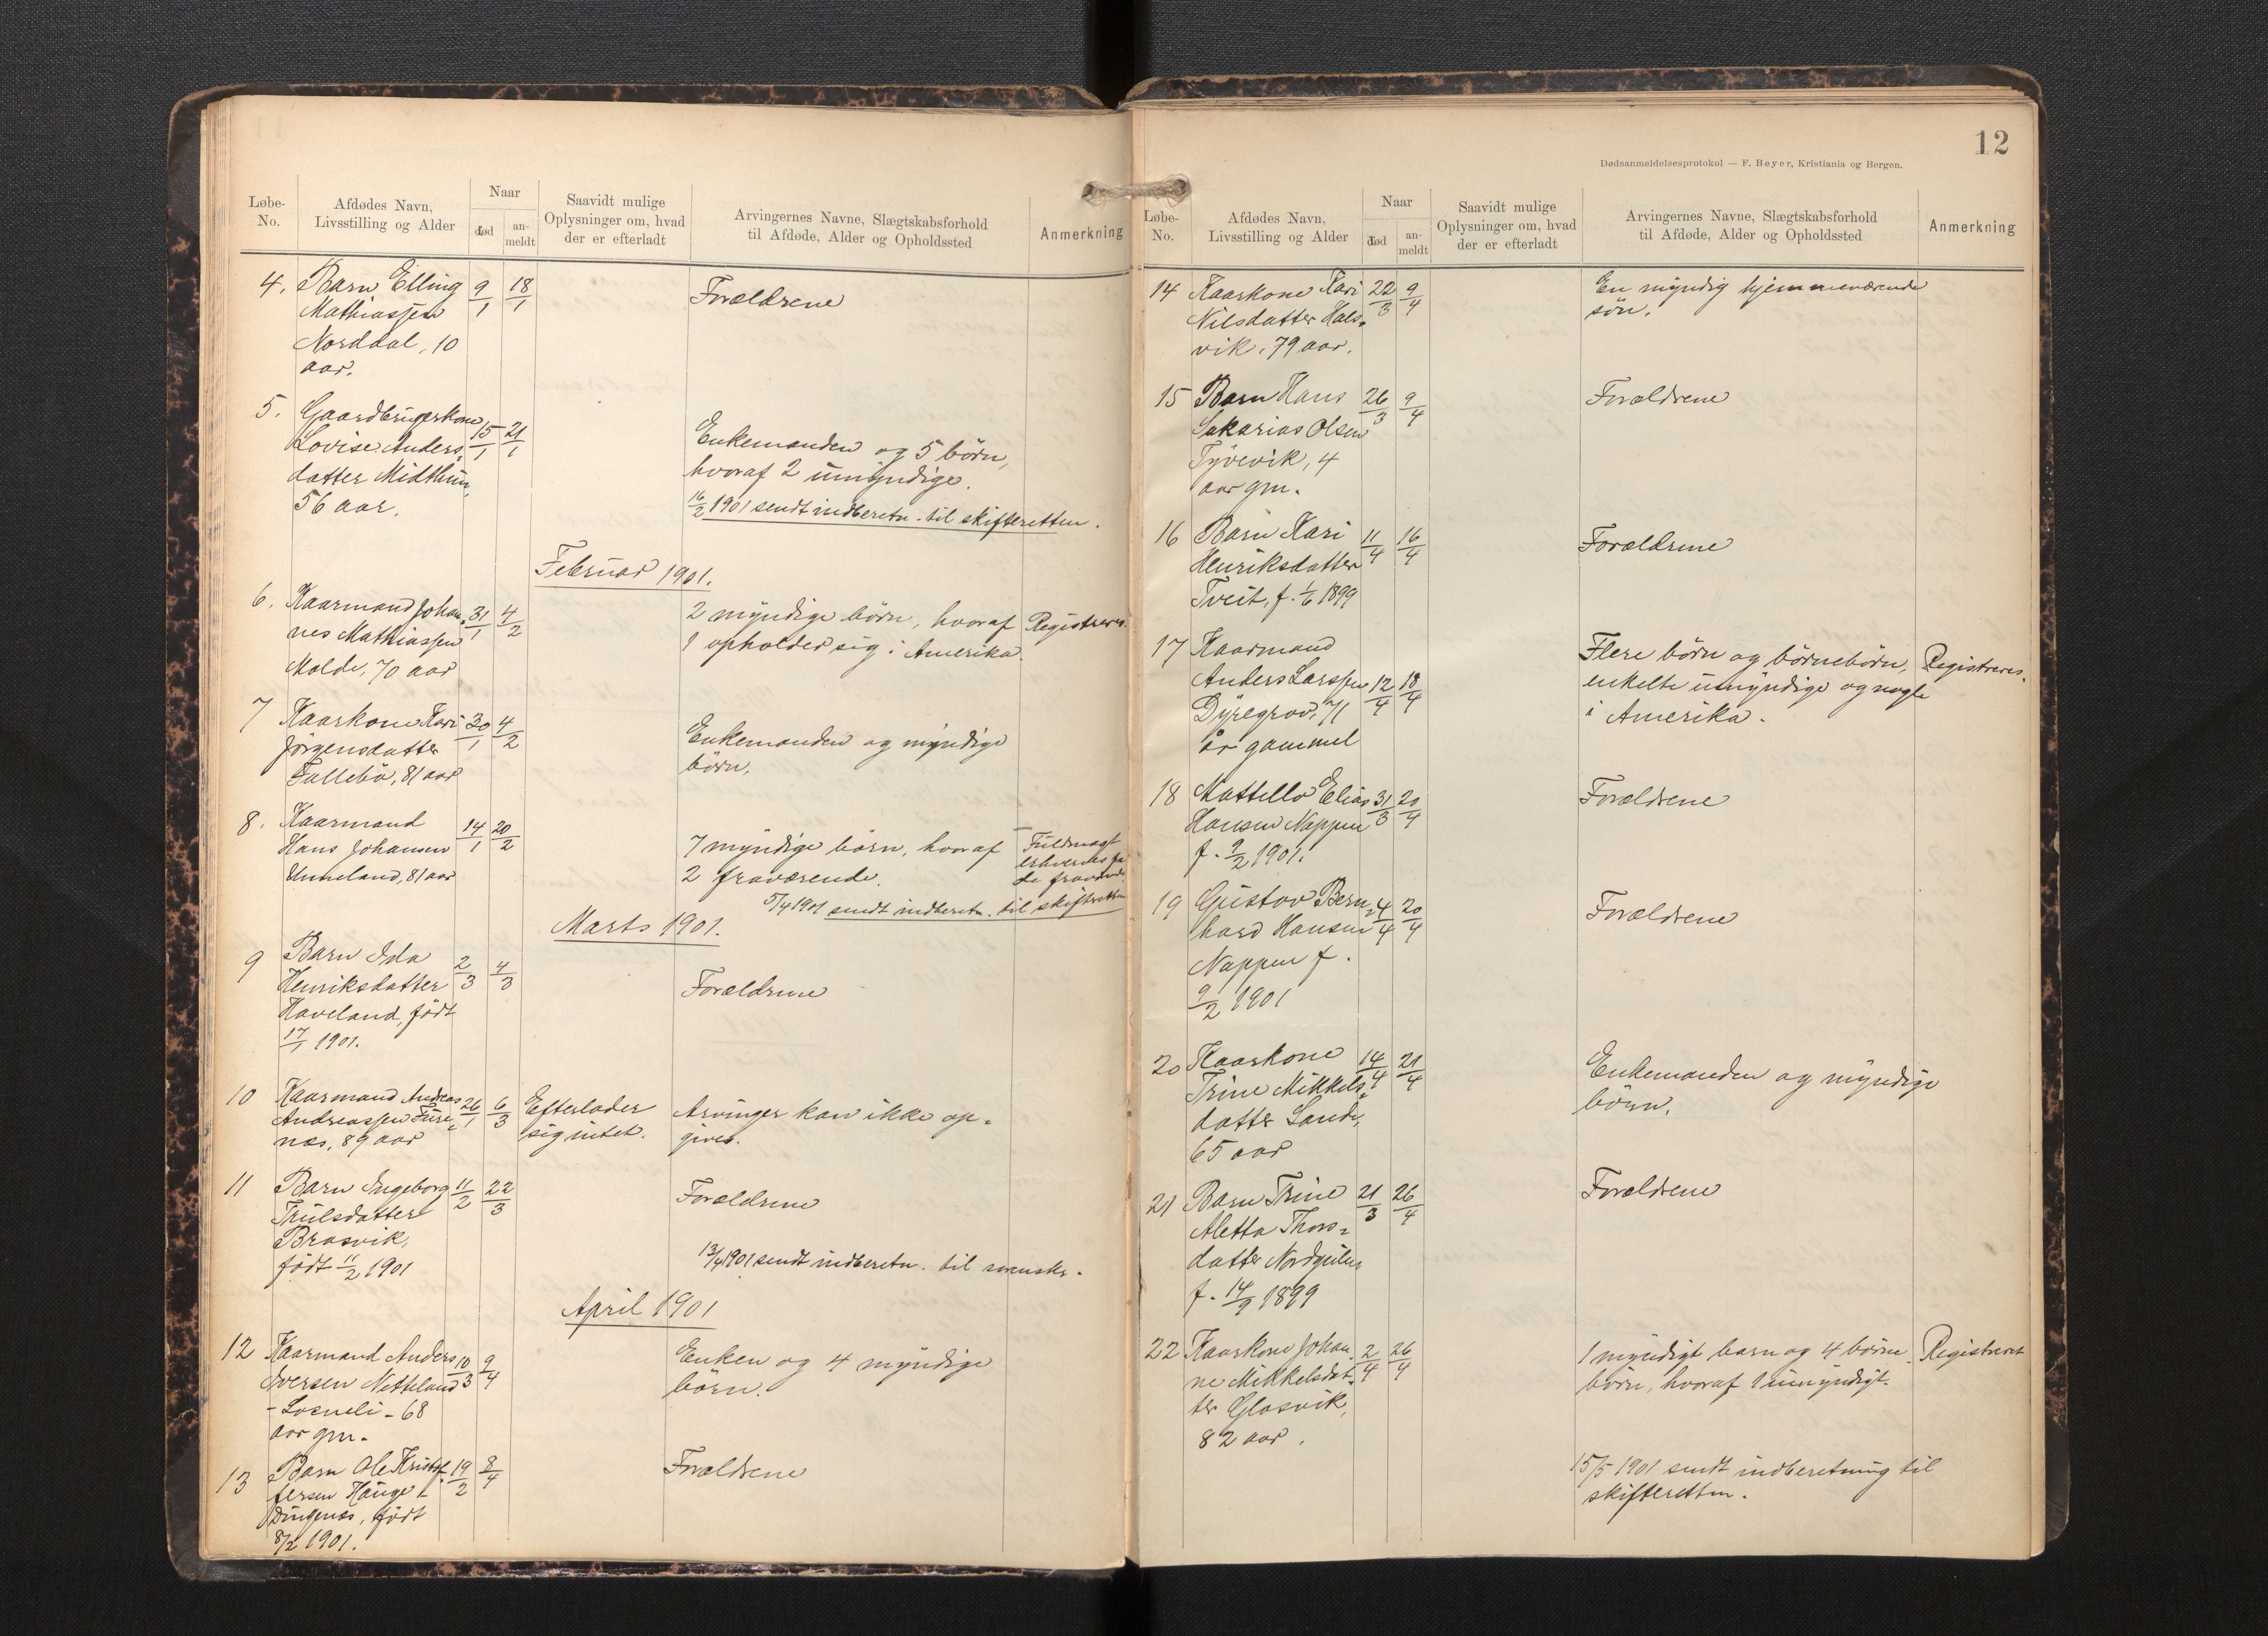 Løbe-
No.
Afdødes Navn,
Livsstilling og Alder
Naar
død
an-
meldt
Saavidt mulige
Oplysninger om, hvad
der er efterladt
Arvingernes Navne, Slægtskabsforhold
til Afdøde, Alder og Opholdssted
Anmerkning
4. Barn Elling 9/1 18/1 Forældrene
Mathiassen
Norddal, 10
aar.
5. Gaardbrugerkone
Lovise Anders- 15/1 21/1 Enkemanden og 5 børn,
datter Midthun, hvoraf 2 umyndige.
56 aar. 16/2 1901 sendt indberetn. til skifteretten.
Februar 1901.
6. Kaarmand Johan- 31/1 4/2 2 myndige børn, hvoraf Registreres.
nes Mathiassen 1 opholder sig i Amerika.
Molde, 70 aar
7 Kaarkone Kari 30/1 4/2 Enkemanden og myndige
Jörgensdatter børn.
Tallebö, 81 aar
8. Kaarmand
Hans Johansen 14/1 20/2 7 myndige børn, hvoraf Fuldmagt
Unneland, 81 aar 2 fraværende. erhverves fra
de fraværende
5/4 1901 sendt indberetn. til skifteretten
Marts 1901.
9 Barn Ida 2/3 4/3 Forældrene
Henriksdatter
Haveland, født
17/1 1901.
10 Kaarmand Andreas 26/1 6/3 Efterlader Arvinger kan ikke op-
Andreassen Fure- sig intet. gives.
næs, 89 aar
11 Barn Ingeborg 11/2 22/3 Forældrene
Trulsdatter
Brosvik,
født 11/2 1901
13/4 1901 sendt indberetn. til sorensk.
April 1901
12 Kaarmand Anders 10/3 9/4 Enken og 4 myndige
Iversen Netteland børn.
- Losneli - 68
aar gm.
13 Barn Ole Kristof- 19/2 8/4 Forældrene
fersen Hauge
Dingenæs, født
8/2 1901.
12
Dødsanmeldelsesprotokol — F. Beyer, Kristiania og Bergen.
Løbe-
No.
Afdødes Navn,
Livsstilling og Alder
Naar
død
an-
meldt
Saavidt mulige
Oplysninger om, hvad
der er efterladt
Arvingernes Navne, Slægtskabsforhold
til Afdøde, Alder og Opholdssted
Anmerkning
14 Kaarkone Kari 22/3 9/4 En myndig hjemmeværende
Nilsdatter Hals- sön.
vik. 79 aar.
15 Barn Hans 26/3 9/4 Forældrene
Sakarias Olsen
Tyvevik, 4
aar gm.
16 Barn Kari 11/4 16/4 Forældrene
Henriksdatter
Tveit, f. 1/6 1899
17 Kaarmand Flere børn og børnebørn, Registreres.
Anders Larssen 12/4 18/4 enkelte umyndige og nogle
Dyregrov, 71 i Amerika.
år gammel
18 Mattello Elias 31/3 20/4 Forældrene
Hansen Nappen
f. 9/2 1901.
19 Gustav Bern- 4/4 20/4 Forældrene
hard Hansen
Nappen f.
9/2 1901
20 Kaarkone 14/4 21/4 Enkemanden og myndige
Trine Mikkels- børn.
datter Lande,
65 aar
21 Barn Trine 21/3 26/4 Forældrene
Aletta Thors-
datter Nordgulen
f. 14/9 1899
22 Kaarkone Johan- 2/4 26/4 1 myndigt barn og 4 börne- Registreret
ne Mikkelsdat- börn, hvoraf 1 umyndigt.
ter Glosvik,
82 aar.
15/5 1901 sendt indberetning til
skifteretten.